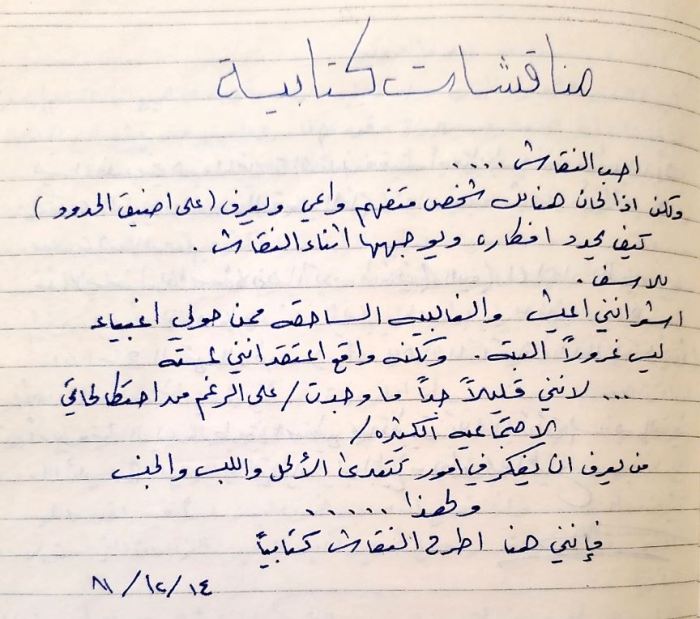 مناقشات كتابية
احب النقاش ....
ولكن اذا كان هنالك شخص متفهم واعي ويعرف (على اضيق الحدود)
كيف يحدد افكاره ويوجهها اثناء النقاش
للاسف .
اشعر انني اعيش والغالبيه الساحقه ممن حولي اغبياء
ليس غروراً البته . ولكنه واقع اعتقد انني لمسته
... لانني قليلاً جداً ما وجدت / على الرغم من احتكاكاتي
الاجتماعيه الكثيره /
من يعرف ان يفكر في امور تتعدى الأكل واللبس والجنس
ولهذا .....
فإنني هنا اطرح النقاش كتابياً
٨١/١٢/١٤